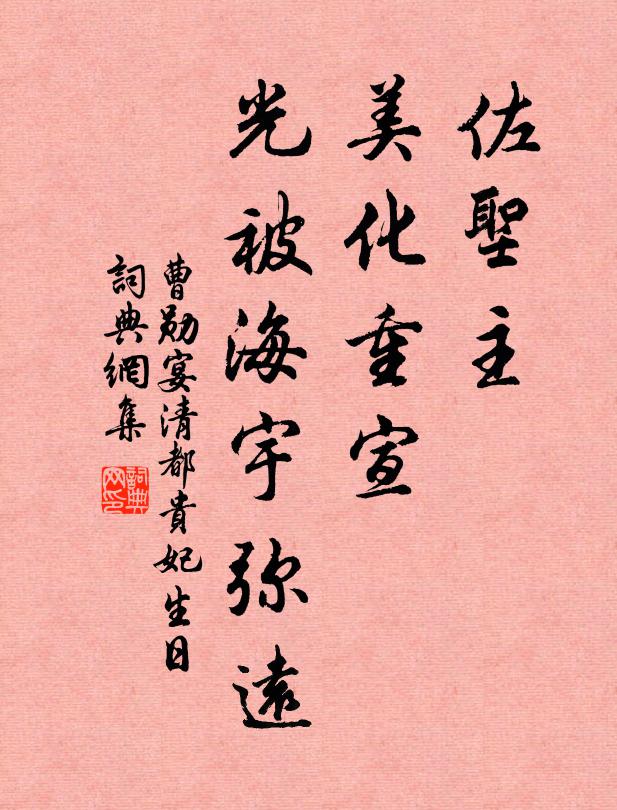 佐聖主
美化重宣
光被海宇弥遠
曹勛宴清都貴妃生日
詞典網集
詞典网印